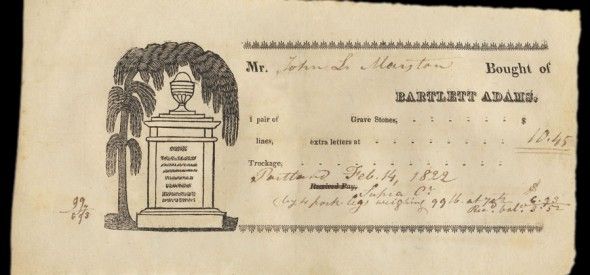 Mr. John L. Marston Bought of
BARTLETT ADAMS,
1 pair of Grave Stones, $
lines, extra letters at 10.45
Truckage,
Portland Feb. 14, 1822
Received Pay,
Supra Cr
by 4 pork legs weighing 99 lb. at 7cts $ 6.93
Rec. bal. 3.52
99